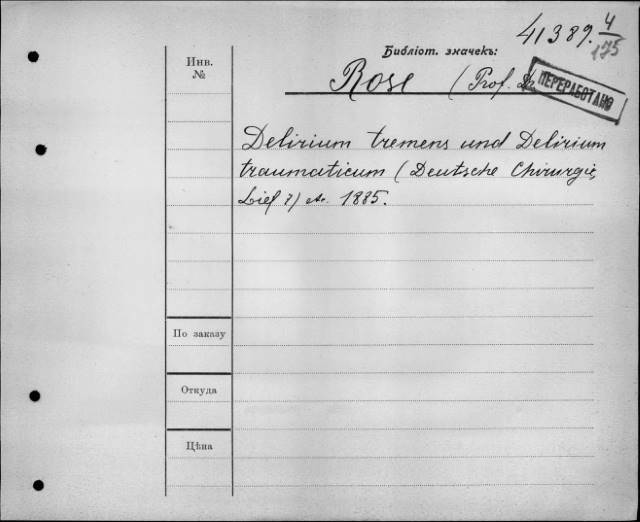 41389. 4/175
Библіот. значекъ:
Rose (Prof. Dr
ПЕРЕРАБОТАНО
Инв.
№
Delirium tremens und Delirium
traumaticum (Deutsche Chirurgie,
Lief 7) 1885.
По заказу
Откуда
Цѣна